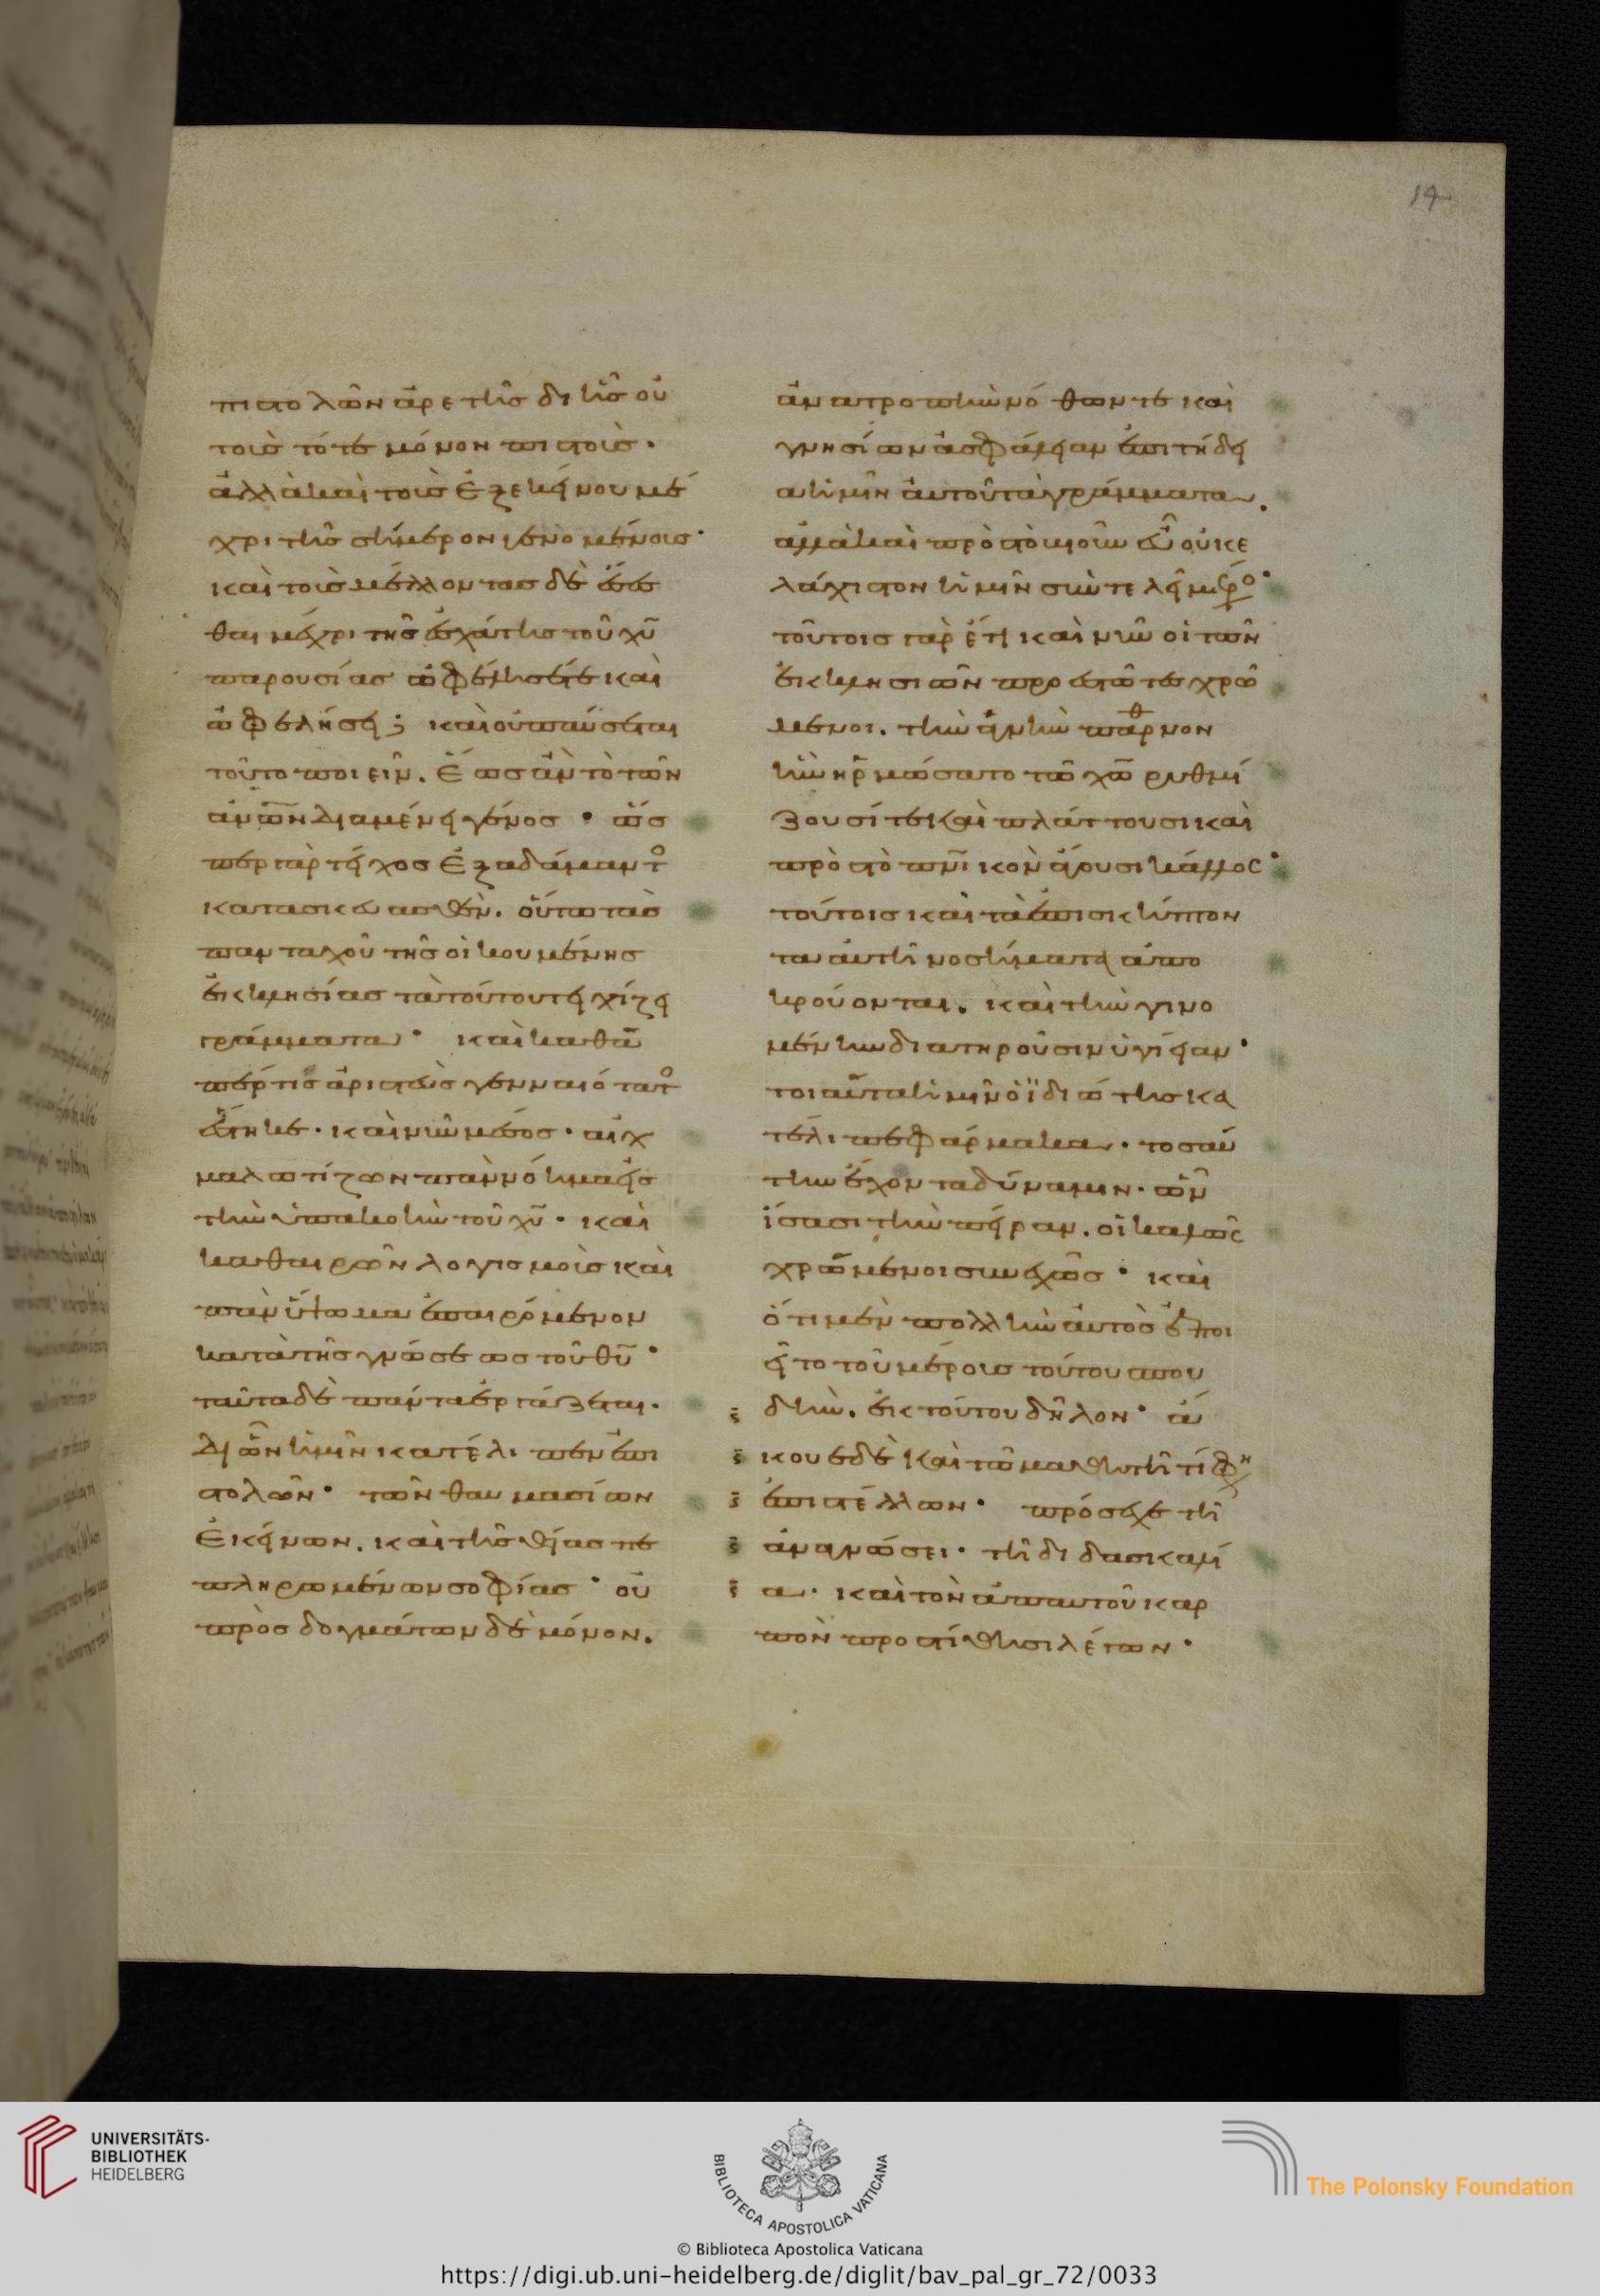 14
πιστολῶν ἀρετῆς δι ἧς οὐ
τοῖς τότε μόνον πιστοῖς·
ἀλλὰ καὶ τοῖς ἐξ ἐκείνου μέ
χρι τῆς σήμερον γενομένοις·
καὶ τοῖς μέλλουσι δὲ ἔσεσ
θαι μέχρι τῆς ἐσχάτης τοῦ χυ
παρουσίας ὠφέλησέ τε καὶ
ὠφελήσει; καὶ οὐ παύσεται
τοῦτο ποιεῖν. ἕως ἂν τὸ τῶν
ἀνων διαμένῃ γένος· ὥσ
περ γὰρ τεῖχος ἐξ ἀδάμαντο
κατασκευασθὲν. οὕτω τὰς
πανταχοῦ τῆς οἰκουμένης
ἐκκλησίας τὰ τούτου τειχίζει
γράμματα· καὶ καθά
πέρ τις ἀριστεὺς γενναιότατο
ἕστηκε. καὶ νῦν μέσος. αἰχ
μαλωτίζων πᾶν νόημα εἰς
τὴν ὑπακοὴν τοῦ χυ. καὶ
καθαιρῶν λογισμοὺς καὶ
πᾶν ὕψωμα ἐπαιρόμενον
κατὰ τῆς γνώσεως τοῦ θυ·
ταῦτα δὲ πάντα ἐργάζεται.
δι ὧν ἡμῖν κατέλιπεν ἐπι
στολῶν· τῶν θαυμασίων
ἐκείνων. καὶ τῆς θείας πε
πληρωμένων σοφίας· οὐ
πρὸς δογμάτων δὲ μόνον.
ἀνατροπὴν νόθων τε καὶ
γνησίων ἀσφάλειαν ἐπιτήδει
α ἡμῖν αὐτοῦ τὰ γράμματα.
ἀλλὰ καὶ πρὸς τὸ βιοῦν εὖ οὐκ ἐ
λάχιστον ἡμῖν συντελεῖ μέρο·
τούτοις γὰρ ἔτι καὶ νῦν οἱ τῶν
ἐκκλησιῶν προεστῶτες χρώ
μενοι. τὴν ἁγνὴν παρθνον
ἣν ἡρμόσατο τῶ χω ῥυθμί
ζουσί τε καὶ πλάττουσι καὶ
πρὸς τὸ πνικὸν ἄγουσι κάλλος·
τούτοις καὶ τὰ ἐπισκήπτον
τα αὐτῆ νοσήματα ἀπο
κρούονται. καὶ τὴν γινο
μένην διατηροῦσιν ὑγίειαν·
τοιαῦτα ἡμῖν ὁ ἰδιώτης κα
τέλιπε φάρμακα. τοσαύ
την ἔχοντα δύναμιν. ὧν
ἴσασι τὴν πεῖραν. οἱ καλῶς
χρώμενοι συνεχῶς· καὶ
ὅτι μὲν πολλὴν αὐτὸς ἐποι
εῖτο τοῦ μέρους τούτου σπου
δὴν. ἐκ τούτου δῆλον· ἄ
κουε δὲ καὶ τῶ μαθητῆ τί φην
ἐπιστέλλων· πρόσεχε τῆ
ἀναγνώσει. τῆ διδασκαλί
α. καὶ τὸν ἀπ αὐτοῦ καρ
πὸν προστίθησι λέγων·
UNIVERSITÄTS-
BIBLIOTHEK
HEIDELBERG
BIBLIOTECA APOSTOLICA VATICANA
The Polonsky Foundation
© Biblioteca Apostolica Vaticana
https://digi.ub.uni-heidelberg.de/diglit/bav_pal_gr_72/0033